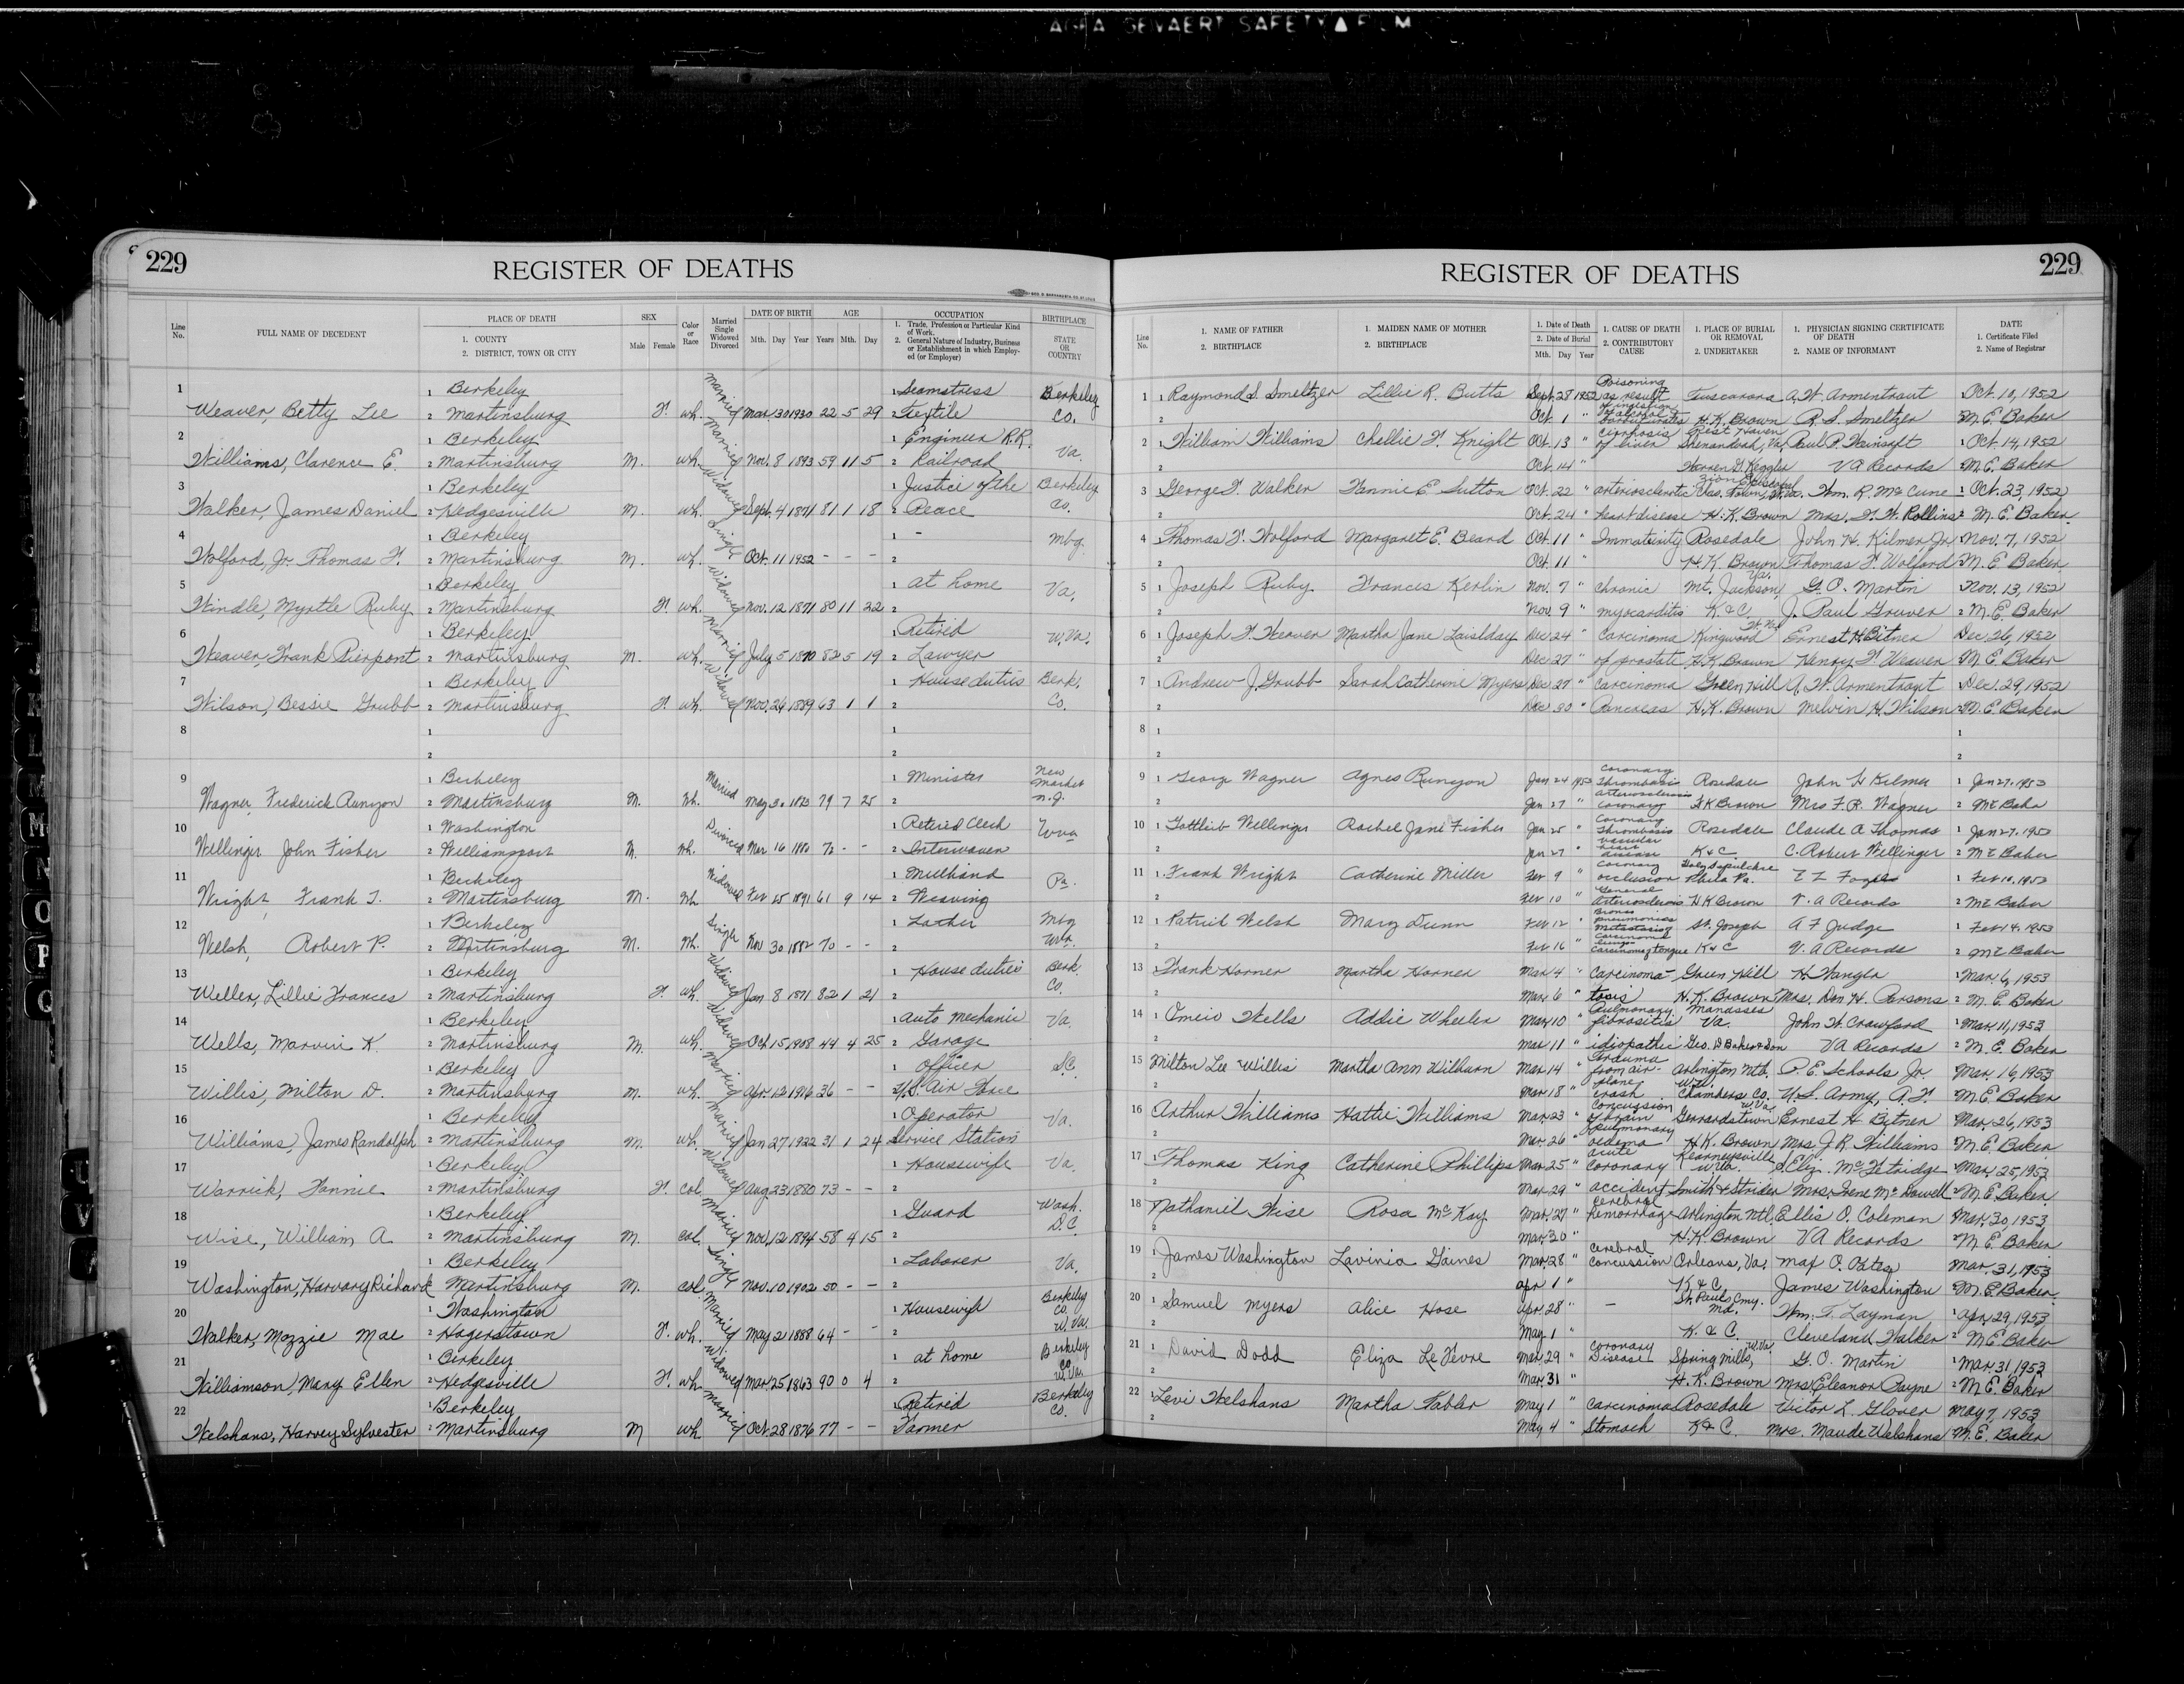 AGFA GEVAERT SAFETY▲FILM
229
REGISTER OF DEATHS
Line No.
FULL NAME OF DECEDENT
PLACE OF DEATH
1. COUNTY
2. DISTRICT, TOWN OR CITY
SEX
Male Female
Color or Race
Married Single Widowed Divorced
DATE OF BIRTH
Mth. Day Year
AGE
Years Mth. Day
OCCUPATION
1. Trade, Profession or Particular Kind of Work.
2. General Nature of Industry, Business or Establishment in which Employed (or Employer)
BIRTHPLACE
STATE OR COUNTRY
1 1 Berkeley Married 1 Seamstress Berkeley
Weaver, Betty Lee 2 Martinsburg F. wh. Mar. 30 1930 22 5 29 2 Textile Co.
2 1 Berkeley Married 1 Engineer R.R. Va.
Williams, Clarence E. 2 Martinsburg M. wh. Nov. 8 1893 59 11 5 2 Railroad
3 1 Berkeley Widowed 1 Justice of the Berkeley
Walker, James Daniel 2 Hedgesville M. wh. Sept. 4 1871 81 1 18 2 Peace Co.
4 1 Berkeley Single 1 - Mbg.
Wolford, Jr. Thomas F. 2 Martinsburg M. wh. Oct. 11 1952 - - - 2
5 1 Berkeley Widowed 1 at home Va.
Windle, Myrtle Ruby 2 Martinsburg F. wh. Nov. 12 1871 80 11 22 2
6 1 Berkeley Married 1 Retired W. Va.
Weaver, Frank Pierpont 2 Martinsburg M. wh. July 5 1870 82 5 19 2 Lawyer
7 1 Berkeley Widowed 1 House duties Berk.
Wilson, Bessie Grubb 2 Martinsburg F. wh. Nov. 26 1889 63 1 1 2 Co.
8 1 1
2 2
9 1 Berkeley Married 1 Minister New Market
Wagner, Frederick Runyon 2 Martinsburg M. Wh. May 30 1873 79 7 25 2 N.J.
10 1 Washington Divorced 1 Retired Clerk W Va
Wellinger John Fisher 2 Williamsport M. Wh. Mar 16 1880 72 - - 2 Interwoven
11 1 Berkeley Widowed 1 Millhand Pa.
Wright, Frank J. 2 Martinsburg M. Wh Feb 25 1891 61 9 14 2 Weaving
12 1 Berkeley Single 1 Lather Mbg
Welsh, Robert P. 2 Martinsburg M. Wh. Nov 30 1882 70 - - 2 W Va.
13 1 Berkeley Widowed 1 House duties Berk.
Weller, Lillie Frances 2 Martinsburg F. wh. Jan 8 1871 82 1 21 2 Co.
14 1 Berkeley Widowed 1 Auto mechanic Va.
Wells, Marvin K. 2 Martinsburg M. wh. Oct. 15 1908 44 4 25 2 Garage
15 1 Berkeley Married 1 Officer S.C.
Willis, Milton D. 2 Martinsburg M. wh. Apr. 12 1916 36 - - U.S. Air Force
16 1 Berkeley Married 1 Operator Va.
Williams, James Randolph 2 Martinsburg M. wh. Jan 27 1922 31 1 24 Service Station
17 1 Berkeley Widowed 1 Housewife Va.
Warrick, Fannie 2 Martinsburg F. col. Aug 23 1880 73 - - 2
18 1 Berkeley Married 1 Guard Wash.
Wise, William A. 2 Martinsburg M. col. Nov. 12 1894 58 4 15 2 D.C.
19 1 Berkeley Single 1 Laborer Va.
Washington, Harvary Richard 2 Martinsburg M. col. Nov. 10 1902 50 - - 2
20 1 Washington Married 1 Housewife Berkeley Co.
Walker, Mozzie Mae 2 Hagerstown F. wh. May 21 1888 64 - - 2 W. Va.
21 1 Berkeley Widowed 1 at home Berkeley Co.
Williamson, Mary Ellen 2 Hedgesville F. wh. Mar. 25 1863 90 0 4 2 W. Va.
22 1 Berkeley Married 1 Retired Berkeley Co.
Welshans, Harvey Sylvester 2 Martinsburg M wh. Oct. 28 1876 77 - - Farmer
229
REGISTER OF DEATHS
Line No.
1. NAME OF FATHER
2. BIRTHPLACE
1. MAIDEN NAME OF MOTHER
2. BIRTHPLACE
1. Date of Death
2. Date of Burial
Mth. Day Year
1. CAUSE OF DEATH
2. CONTRIBUTORY CAUSE
1. PLACE OF BURIAL OR REMOVAL
2. UNDERTAKER
1. PHYSICIAN SIGNING CERTIFICATE OF DEATH
2. NAME OF INFORMANT
DATE
1. Certificate Filed
2. Name of Registrar
1 1 Raymond S. Smeltzer Lillie R. Butts Sept. 28 1952 Poisoning as result Tuscarora A. W. Armentrout Oct. 10, 1952
2 Oct. 1 " barbiturates H. K. Brown R. S. Smeltzer 2 M. E. Baker
2 1 William Williams Chellie F. Knight Oct. 13 " cirrhosis of liver Rest Haven Shenandoah, Va. Paul P. Weinsaft 1 Oct 14, 1952
2 Oct. 14 " Warren G. Keggler VA Records 2 M. E. Baker
3 1 George F. Walker Fannie E. Sutton Oct. 22 " arteriosclerotic Zion Episcopal Chas. Town, W. Va. Wm. R. McCune 1 Oct. 23, 1952
2 Oct. 24 " heart disease H. K. Brown Mrs. F. W. Rollins 2 M. E. Baker
4 1 Thomas F. Wolford Margaret E. Beard Oct. 11 " Immaturity Rosedale John H. Kilmer Jr. Nov. 7, 1952
2 Oct. 11 " H. K. Brown Thomas F. Wolford 2 M. E. Baker
5 1 Joseph Ruby Frances Kerlin Nov. 7 " chronic Mt. Jackson Va. G. O. Martin Nov. 13, 1952
2 Nov. 9 " myocarditis K & C J. Paul Gruver 2 M. E. Baker
6 1 Joseph F. Weaver Martha Jane Laislday Dec 24 " Carcinoma Kingwood W. Va. Ernest H. Bitner Dec. 26, 1952
2 Dec 27 " of prostate H. K. Brown Henry F. Weaver M. E. Baker
7 1 Andrew J. Grubb Sarah Catherine Myers Dec 27 " Carcinoma Green Hill A. W. Armentrout Dec. 29, 1952
2 Dec 30 " Pancreas H. K. Brown Melvin H. Wilson 2 M. E. Baker
8 1 1
2 2
9 1 George Wagner Agnes Runyon Jan 24 1953 Coronary Thrombosis Rosedale John H Kilmer 1 Jan 27. 1953
2 Jan 27 " Arteriosclerosis coronary H K Brown Mrs F. R. Wagner 2 M E Baker
10 1 Gottleib Wellinger Rachel Jane Fisher Jan 25 " Coronary Thrombosis Rosedale Claude A Thomas 1 Jan 27. 1953
2 Jan 27 " vascular heart disease K & C C. Robert Wellinger 2 M E Baker
11 1 Frank Wright Catherine Miller Feb 9 " Coronary occlusion Holy Sepulchre Phila Pa. 1 Feb 10. 1953
2 Feb 10 " General Arteriosclerosis H K Brown V. A Records 2 M E Baker
12 1 Patrick Welsh Mary Dunn Feb 12 " Bronco pneumonia St. Joseph A F Judge 1 Feb 14. 1953
2 Feb 16 " metastasing carcinoma lungs carcinoma of tongue K & C V. A Records 2 M E Baker
13 1 Frank Horner Martha Horner Mar 4 " Carcinoma- Green Hill H. Wanger 1 Mar. 6, 1953
2 Mar. 6 " tosis H. K. Brown Mrs. Don H. Parsons 2 M. E. Baker
14 1 Omeio Wells Addie Wheeler Mar. 10 " Pulmonary fibrositis Manassas Va. John W. Crawford 1 Mar. 11, 1953
2 Mar 11 " idiopathic Geo. D Baker & Son VA Records 2 M. E. Baker
15 1 Milton Lee Willis Martha Ann Wilburn Mar 14 " Trauma from air- Arlington Ntl. P. E. Schools Jr. Mar. 16, 1953
2 Mar 18 " plane crash Chambers Co. U. S. Army, A. F. M. E. Baker
16 1 Arthur Williams Hattie Williams Mar. 23 " Concussion of brain Gerrardstown W. Va. Ernest H. Bitner Mar. 26, 1953
2 Mar. 26 " pulmonary oedema H. K. Brown Mrs. J. R. Williams M. E. Baker
17 1 Thomas King Catherine Phillips Mar. 25 " acute coronary Kearneysville W. Va. S. Eliz. McFetridge Mar. 25, 1953
Mar. 29 " accident Smith & Strider Mrs. Irene McDowell 2 M. E. Baker
18 1 Nathaniel Wise Rosa McKay Mar. 27 " cerebral hemorrhage Arlington Ntl. Ellis O. Coleman Mar. 30, 1953
2 Mar. 30 " H. K. Brown VA Records M. E. Baker
19 1 James Washington Lavinia Gaines Mar. 28 " cerebral concussion Orleans, Va. Max O. Oates Mar. 31, 1953
2 Apr 1 " K & C James Washington M. E. Baker
20 1 Samuel Myers Alice Hose Apr. 28 " - St. Pauls Cmy. Md. Wm. T. Layman 1 Apr. 29, 1953
2 May 1 " K. & C. Cleveland Walker 2 M E Baker
21 1 David Dodd Eliza LeFevre Mar. 29 " coronary Disease Spring Mills, W. Va. G. O. Martin 1 Mar. 31 1953
2 Mar. 31 " H. K. Brown Mrs Eleanor Payne 2 M E. Baker
22 1 Levi Welshans Martha Tabler May 1 " Carcinoma Rosedale Victor L. Glover May 7, 1953
2 May 4 " Stomach K & C. Mrs. Maude Welshans M. E. Baker
M
N
O
P
Q
U
V